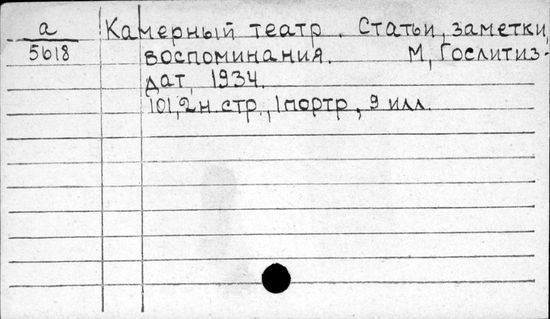 а Камерный театр. Статьи, заметки,
5618 воспоминания. М, Гослитиз-
дат, 1934.
101,2 н. стр., 1 портр, 9 илл.